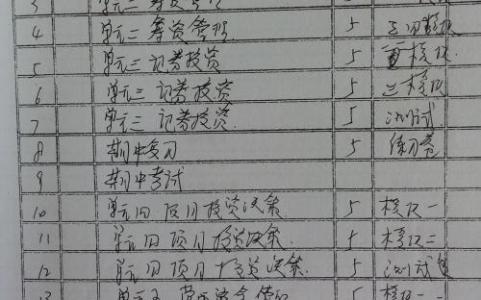 3 单元二 筹资管理
4 单元二 筹资管理 5
5 单元三 证券投资 5 模块
6 单元三 证券投资 5 二模块
7 单元三 证券投资 5 测试
8 期中复习 5 练习卷
9 期中考试
10 单元四 项目投资决策 5 模块一
11 单元四 项目投资决策 5 模块二
12 单元四 项目投资决策 5 测试
13 单元五 5 模块一